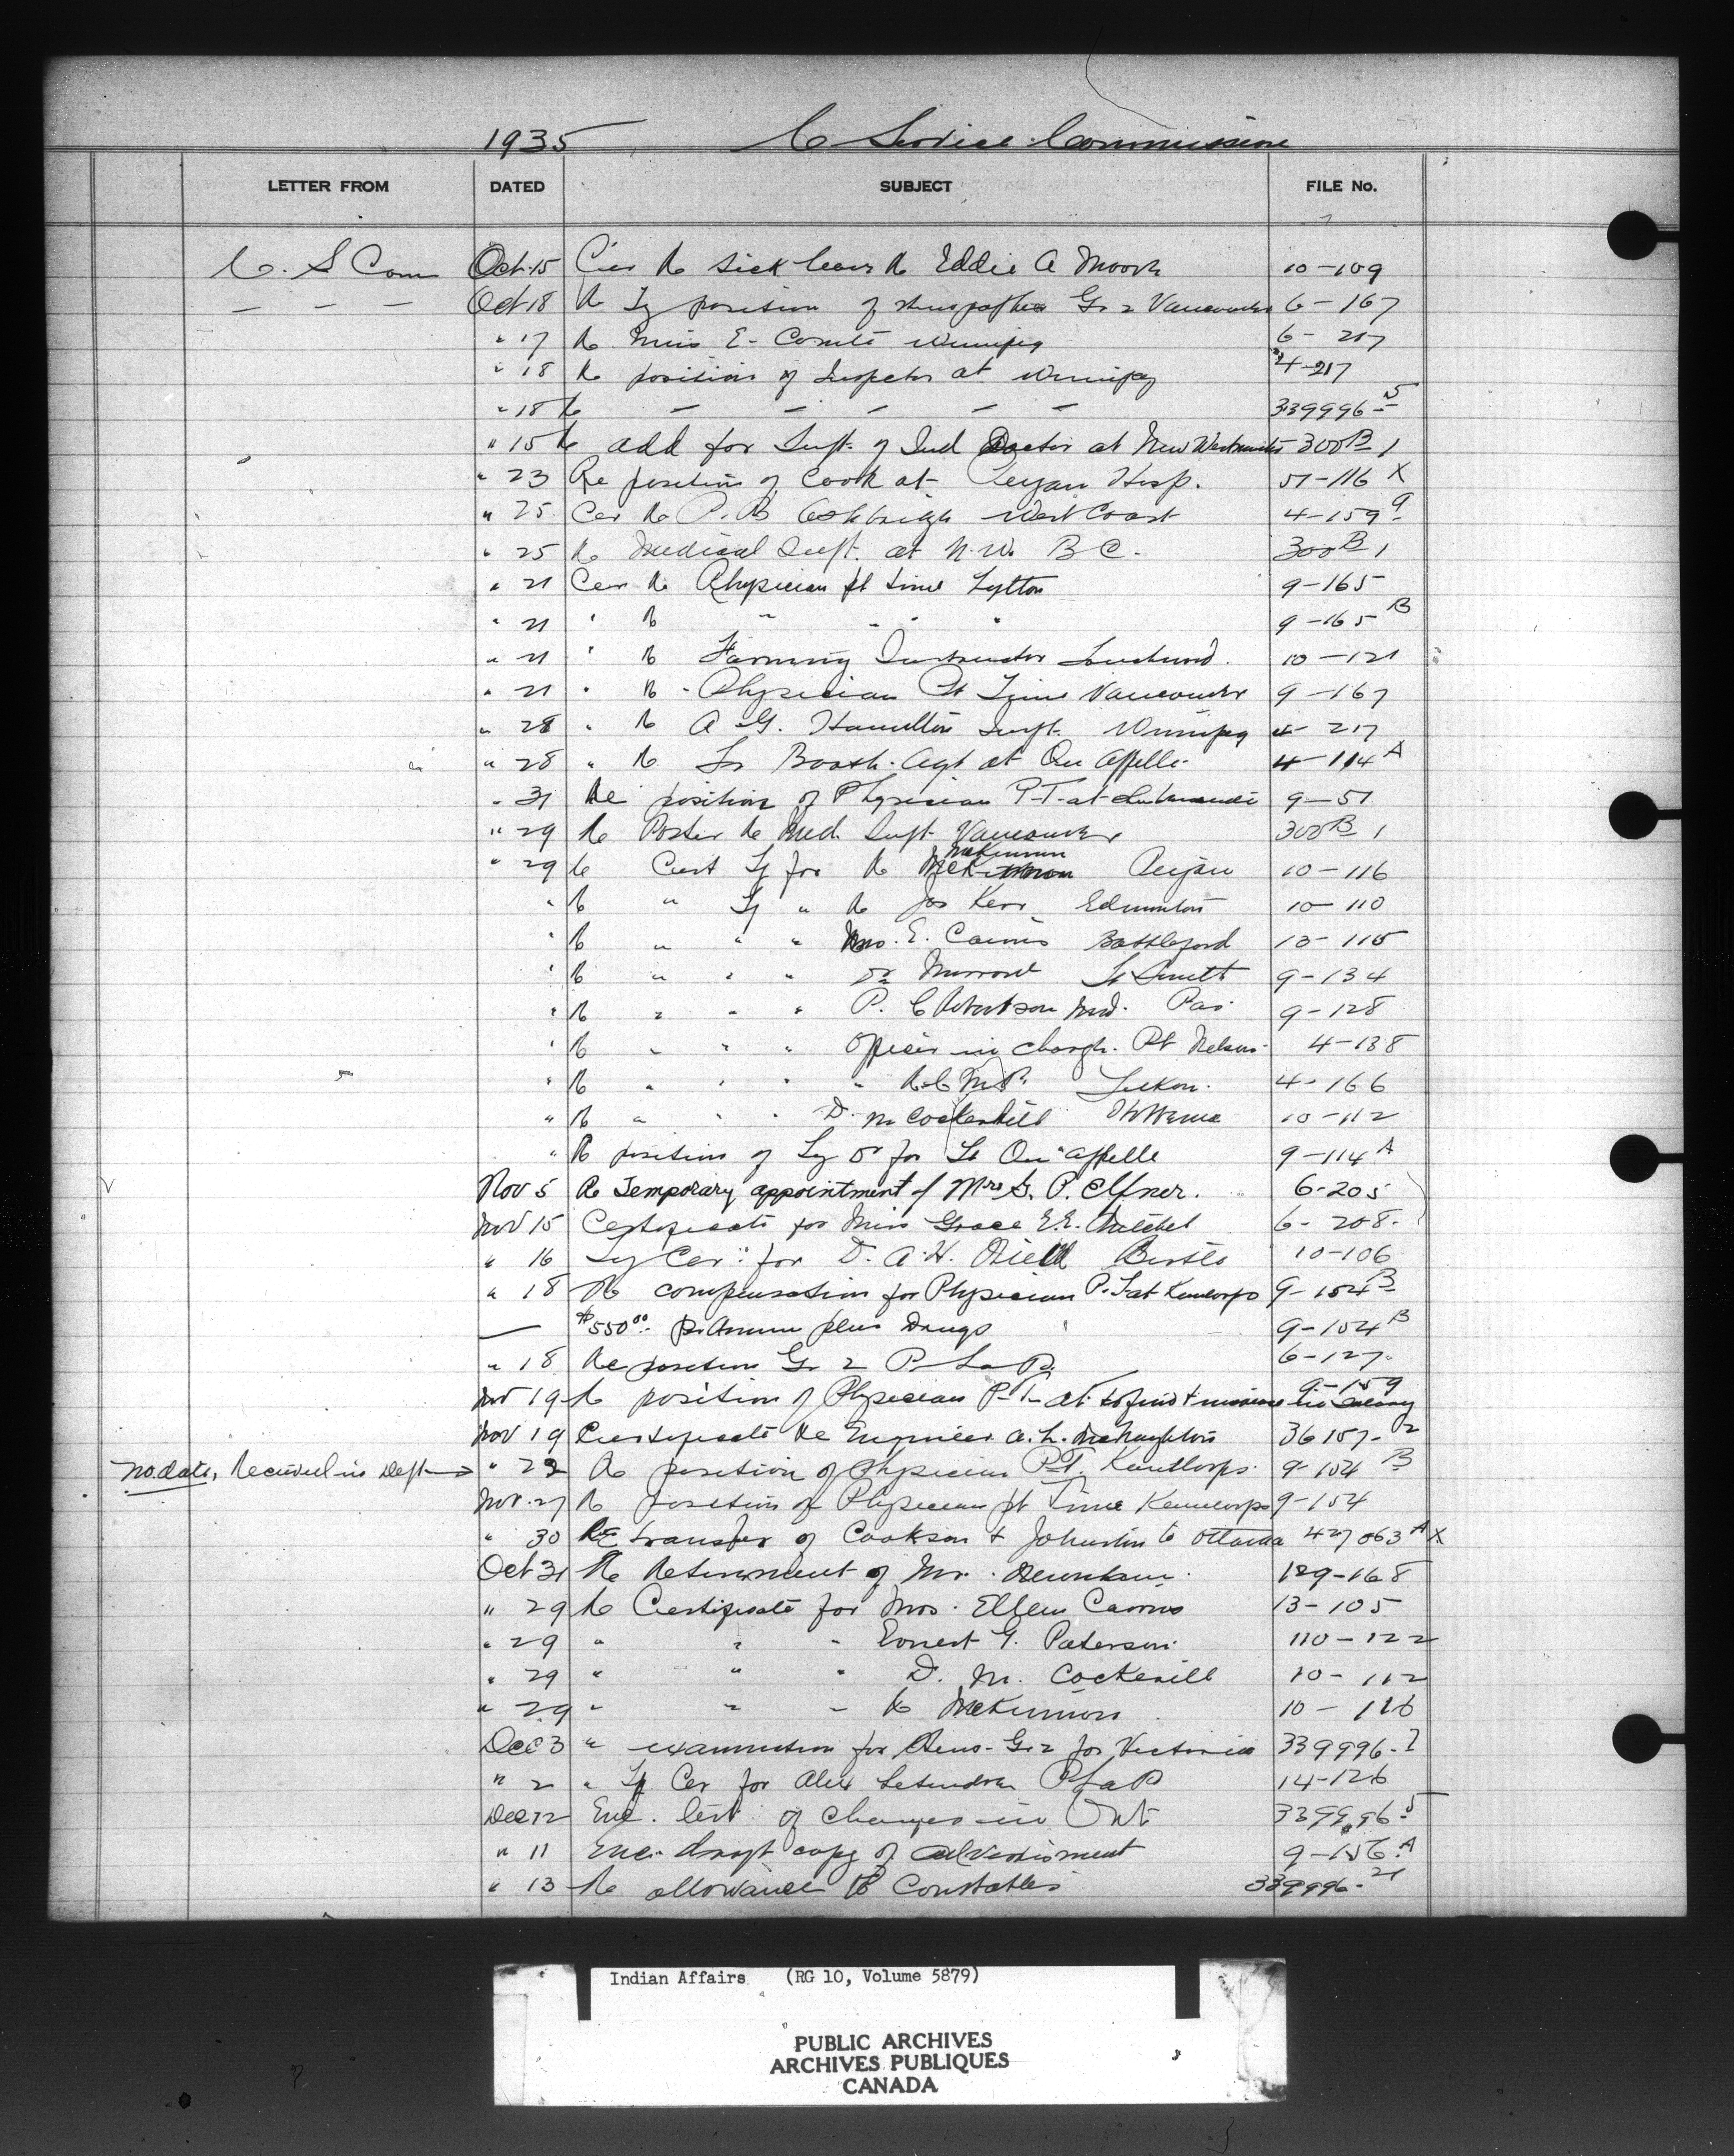 1935 C Service Commission
LETTER FROM DATED SUBJECT FILE No.
C. S Com Oct 15 Cer Re sick leave Re Eddie A Moore 10-109
— — — Oct 18 Re Ty position of Gr 2 Vancouver 6-167
" 17 Re Miss E. Comte Winnipeg 6-217
" 18 Re position of Inspector at Winnipeg 4-217
" 18 Re — — — — — 339996-5
" 15 Re add for Supt. of Ind Doctor at New Westminster 300B 1
" 23 Re position of Cook at Peigan Hosp. 51-116 X
" 25 Cer Re P. B. Ashbridge West Coast 4-159 9
" 25 Re Medical Supt. at N.W. B C. 300B 1
" 21 Cer Re Physician pt time Lytton 9-165
" 21 " Re " " " " 9-165 B
" 21 " Re Farming Instructor 10-121
" 21 " Re Physician Pt Time Vancouver 9-167
" 28 " Re A. G. Hamilton Supt. Winnipeg 4-217
" 28 " Re Booth. Agt at Qu Appelle 4-114 A
" 31 Re position of Physician P-T- at 9-51
" 29 Re Poster Re Med. Supt Vancouver 300B 1
" 29 Re Cert Ty for Re McKinnon Peigan 10-116
" Re " Ty " Re Jas Kerr Edmonton 10-110
" Re " " " Mrs. E. Cairns Battleford 13-115
" Re " " " Dr Ft Smith 9-134
" Re " " " P. C. Robertson Med. Pas 9-128
" Re " " " Officer in charge. Pt Nelson 4-138
" Re " " " " R.C.M.P. Yukon. 4-166
" Re " " " D. M Cockerill Hobbema 10-112
" Re position of Ty Dr for Ft Qu'appelle 9-114 A
Nov 5 Re Temporary appointment of Mrs G. P. Elfner. 6-205
Nov 15 Certificate for Miss Grace E.E. Mitchel 6-208.
" 16 Ty Cer: for D. A. H. Birtle 10-106
" 18 Re compensation for Physician P.T. at Kamloops 9-154 B
— $550.00 pr Annum plus Drugs 9-154 B
" 18 Re position Gr 2 P La P. 6-127.
Nov 19 Re position of Physician P-T- at Tofino + 9-159
Nov 19 Certificate Re Engineer A. L. McNaughton 36157-2
no date, Received in Dept → " 22 Re position of Physician P.T. Kamloops. 9-154 B
Nov. 27 Re position of Physician pt Time Kamloops 9-154
" 30 RE transfer of Cookson + Johnston to Ottawa 427063 A X
Oct 31 Re Retirement of Mr. 129-168
" 29 Re Certificate for Mrs. Ellen Cairns 13-105
" 29 " " " Ernest G. Paterson. 110-122
" 29 " " " D. M. Cockerill 10-112
" 29 " " " Re McKinnon 10-116
Dec 3 " examination for Steno-Gr 2 for Victoria 339996.7
" 2 " Ty Cer for Alex Letendre P La P 14-126
Dec 12 Enc. list of changes in Ont 339996.5
" 11 Enc. draft copy of advertisment 9-156.A
" 13 Re allowance to Constables 339996.21
Indian Affairs (RG 10, Volume 5879)
PUBLIC ARCHIVES
ARCHIVES PUBLIQUES
CANADA